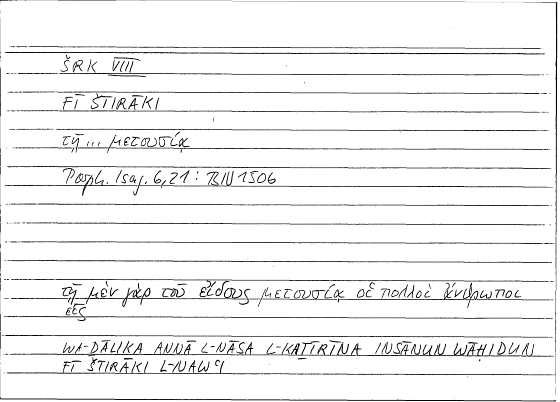 ŠRK VIII
FĪ ŠTIRĀKI
τῇ ... μετουσίᾳ
Porph. Isag. 6,21: BIN 1506
τῇ μὲν γὰρ τοῦ εἴδους μετουσίᾳ οἱ πολλοὶ ἄνθρωποι
εἷς
WA-ḎĀLIKA ANNA L-NĀSA L-KAṮĪRĪNA INSĀNUN WĀḤIDUN
FĪ ŠTIRĀKI L-NAWʿI